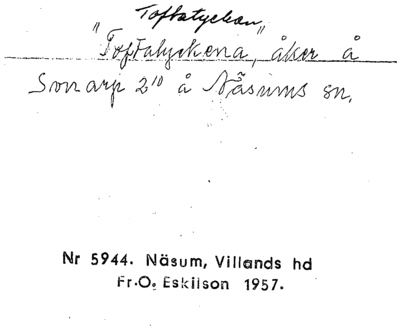 Toftatyckan
"Toftalyckena, åker å
Sonarp 2¹⁰ å Näsums sn.
Nr 5944. Näsum, Villands hd
Fr. O. Eskilson 1957.